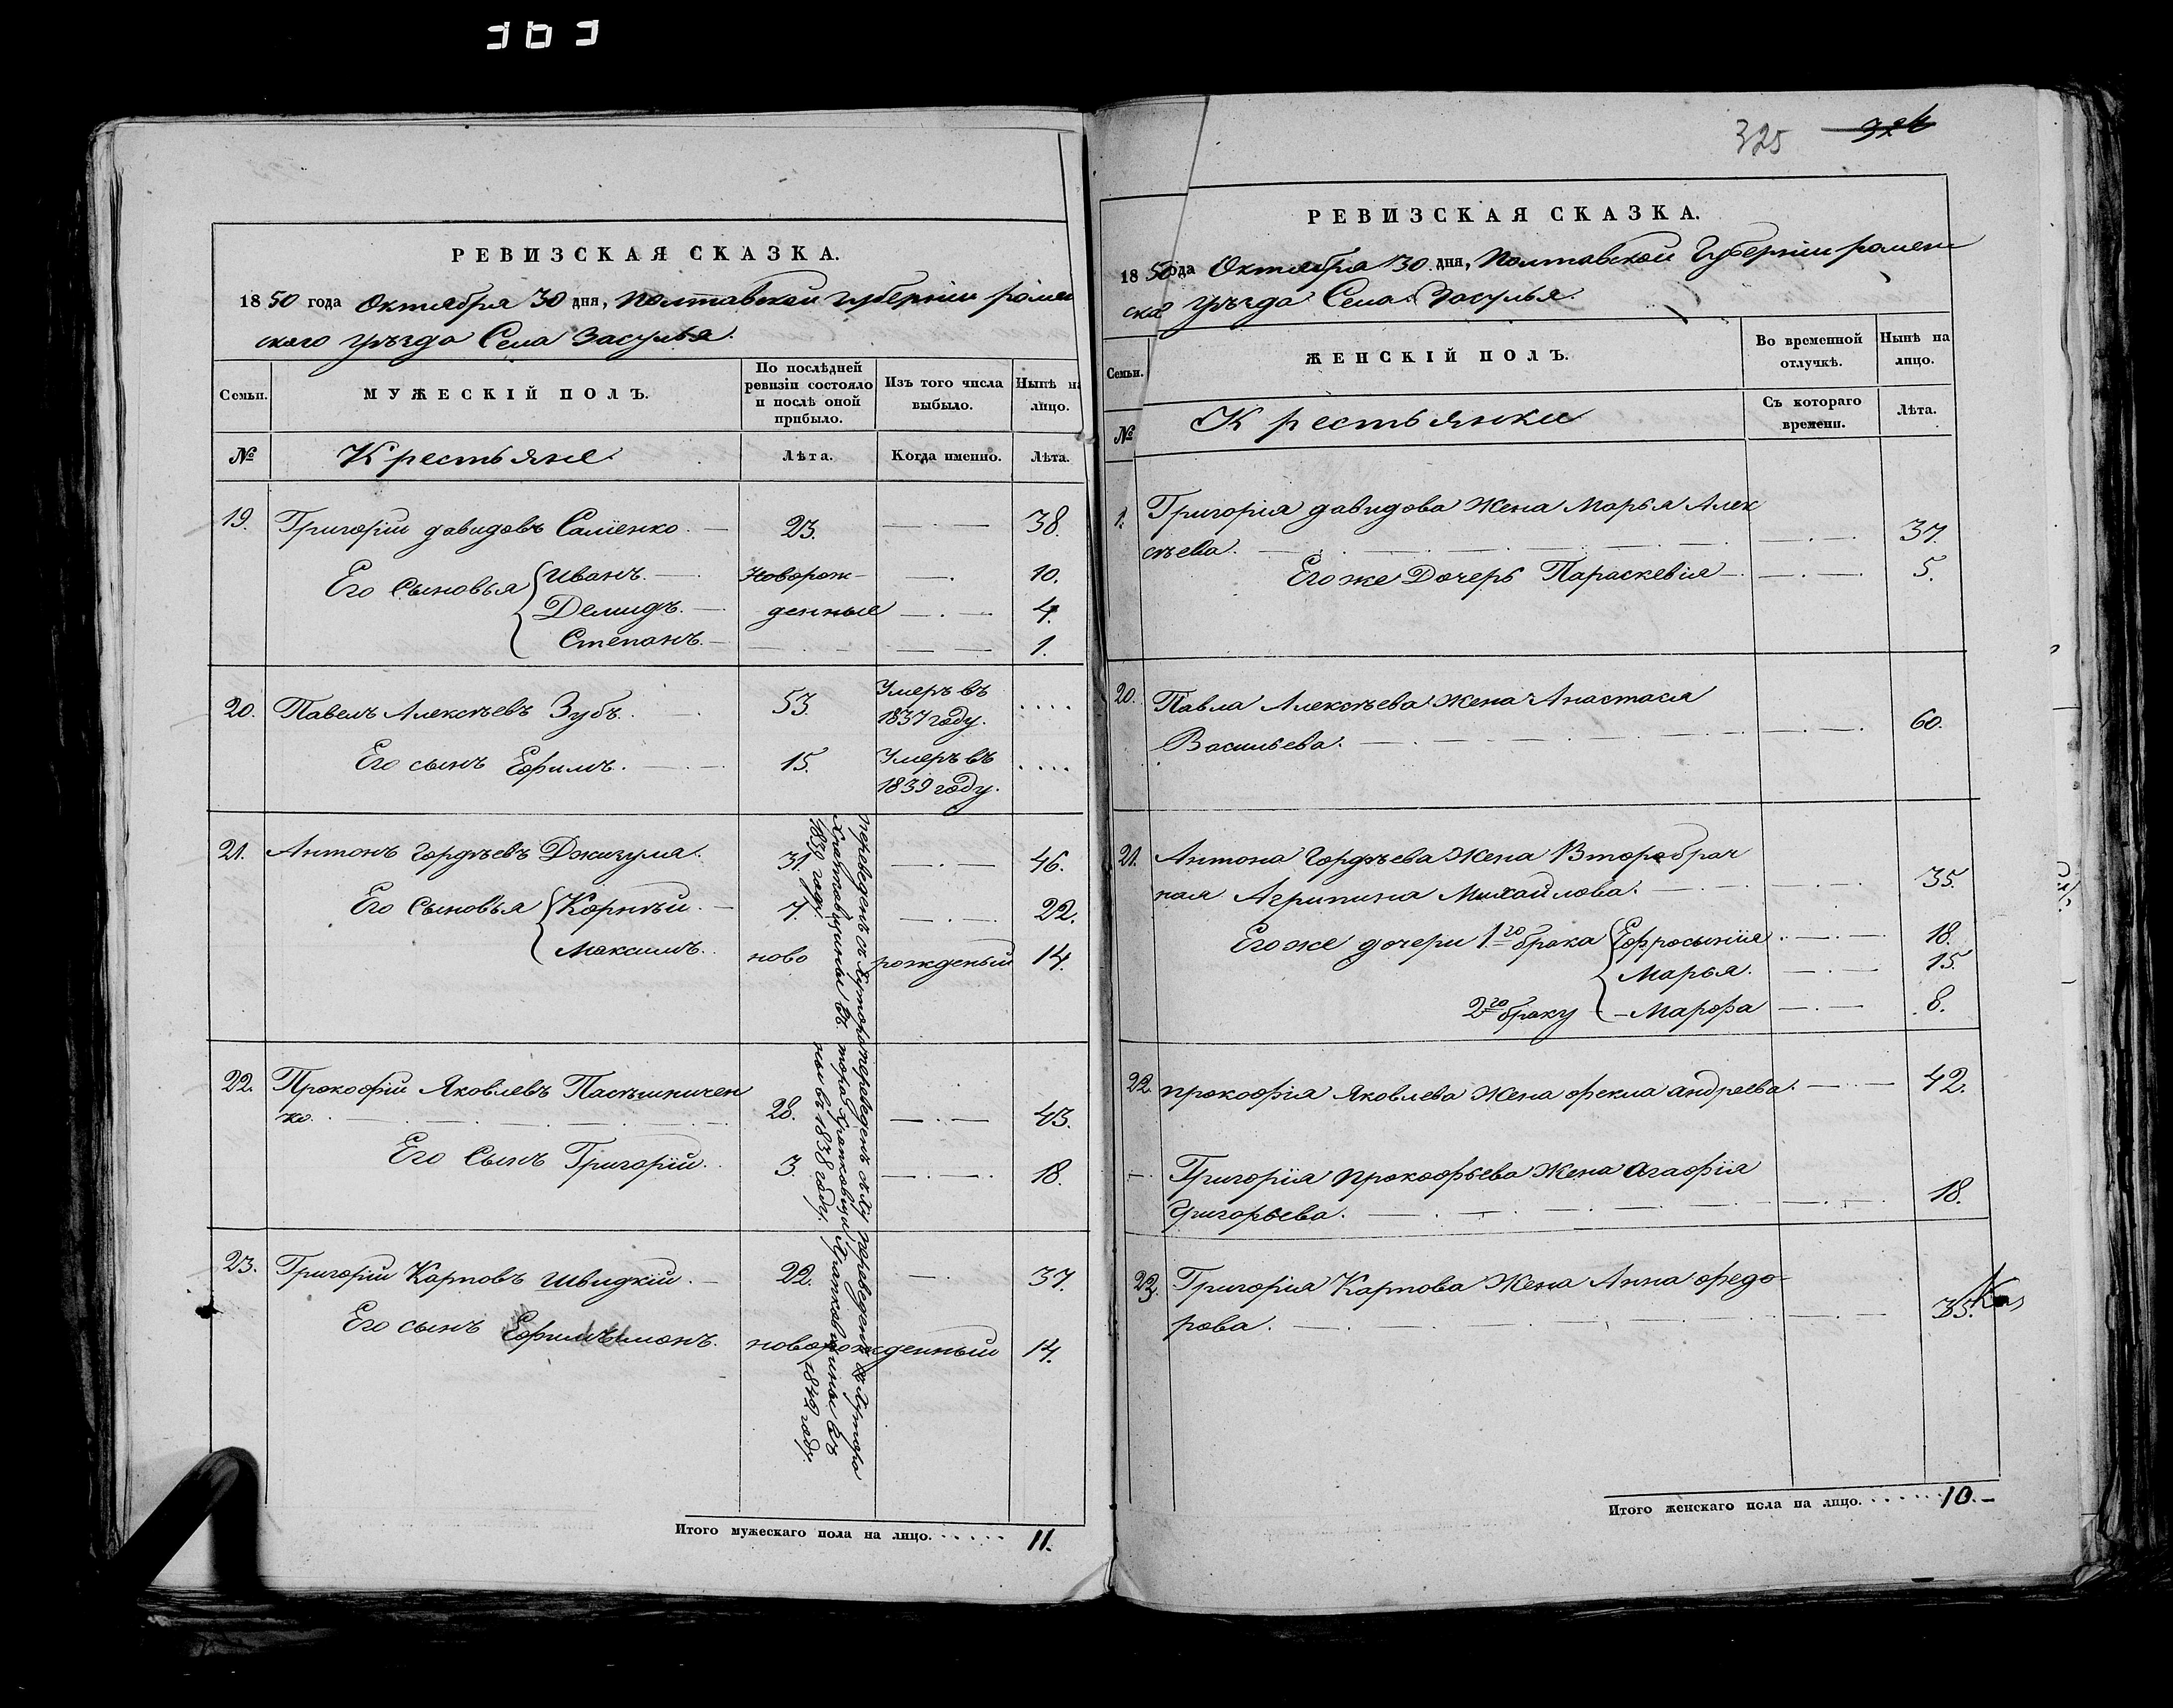 363
РЕВИЗСКАЯ СКАЗКА.
1850 года Октября 30 дня, Полтавской губерніи ромен
ского уѣзда Села Засулья.
Семьи.
МУЖЕСКІЙ ПОЛЪ.
По послѣдней
ревизіи состояло
и послѣ оной
прибыло.
Изъ того числа
выбыло.
Нынѣ на
лицо.
№
Крестьяне
Лѣта.
Когда именно.
Лѣта.
19. Григорій давидовъ Саліенко. 23. 38.
Его Сыновья Иванъ. Новорож- 10.
Демидъ. денные 4.
Степанъ. 1.
20. Павелъ Алексѣевъ Зубъ. 53. Умеръ въ
1837 году.
Его сынъ Ефимъ. 15. Умеръ въ
1839 году.
21. Антонъ Гордѣевъ Джигума. 31. 46.
Его Сыновья Корнѣй. 7. 22.
Максимъ. ново рожденый 14.
переведенъ съ Хутора
въ
1839 году.
22. Прокофій Яковлевъ Пасѣшниченко
ко. 28. 43.
Его Сынъ Григорій. 3. 18.
переведенъ
въ 1838 году.
23. Григорій Карповъ Швидкій. 22. 37.
Его сынъ новорожденный 14.
переведенъ Хутора
въ
1840 году.
Итого мужескаго пола на лицо. 11.
325 324
РЕВИЗСКАЯ СКАЗКА.
1850 года Октября 30 дня, Полтавской Губерніи ромен
ска уѣзда Села Засулья.
Семьи.
ЖЕНСКІЙ ПОЛЪ.
Во временной
отлучкѣ.
Нынѣ на
лицо.
№
Крестьянки
Съ котораго
времени.
Лѣта.
1. Григорія давидова Жена Марья Алек
сѣева. 37.
Его же Дочерь Параскевія 5.
20. Павла Алексѣева Жена Анастася
Васильева. 60.
21. Антона Гордѣева Жена Второбрач
ная Агрипина Михайлова. 35.
Его же дочери 1го брака Ефросынія 18.
Марья. 15.
2го браку Марфа 8.
22. Прокофія Яковлева Жена Фекла андреева. 42.
Григорія Прокофьева Жена Агафія
Григорьева. 18.
23. Григорія Карпова Жена Анна федо-
рова. 35.
Итого женскаго пола на лицо. 10.